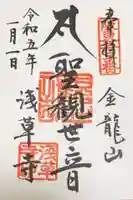 奉拝
金龍山
聖観世音
浅草寺
令和五年
一月一日